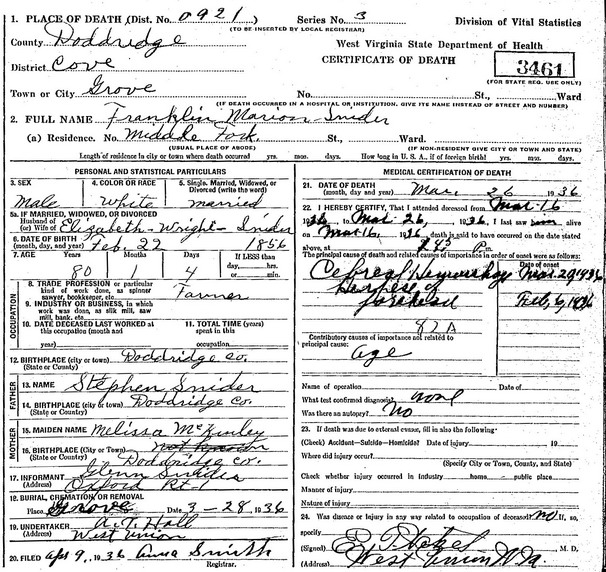 1. PLACE OF DEATH (Dist. No. 0921) Series No. 3 Division of Vital Statistics
(TO BE INSERTED BY LOCAL REGISTRAR)
County Doddridge West Virginia State Department of Health
District Cove CERTIFICATE OF DEATH 3461
(FOR STATE REG. USE ONLY)
Town or City Grove No. St., Ward
(IF DEATH OCCURRED IN A HOSPITAL OR INSTITUTION, GIVE ITS NAME INSTEAD OF STREET AND NUMBER)
2. FULL NAME Franklin Marion Snider
(a) Residence. No. Middle Fork St., Ward.
(USUAL PLACE OF ABODE) (IF NON-RESIDENT GIVE CITY OR TOWN AND STATE)
Length of residence in city or town where death occurred yrs. mos. days. How long in U. S., if of foreign birth? yrs. mos. days.
PERSONAL AND STATISTICAL PARTICULARS
3. SEX 4. COLOR OR RACE 5. Single, Married, Widowed, or Divorced (write the word)
Male White married
5a. IF MARRIED, WIDOWED, OR DIVORCED
Husband of
(or) Wife of Elizabeth-Wright-Snider
6. DATE OF BIRTH
(month, day, and year) Feb. 22 1856
7. AGE Years Months Days If LESS than
80 1 4 day, hrs.
or min.
8. TRADE PROFESSION or particular
kind of work done, as spinner
sawyer, bookkeeper, etc. Farmer
9. INDUSTRY OR BUSINESS, in which
work was done, as silk mill, saw
mill, bank, etc.
10. DATE DECEASED LAST WORKED at
this occupation (month and
year)
11. TOTAL TIME (years)
spent in this
occupation
OCCUPATION
12. BIRTHPLACE (city or town) Doddridge co.
(State or County)
FATHER
13. NAME Stephen Snider
14. BIRTHPLACE (city or town) Doddridge Co.
(State or Country)
MOTHER
15. MAIDEN NAME Melissa McKinley
16. BIRTHPLACE (City or Town)
(State or Country) Doddridge co.
17. INFORMANT Glenn Snider
(Address) Oxford Rt-1
18. BURIAL, CREMATION, OR REMOVAL
Place Grove Date 3-28 1936
19. UNDERTAKER A.T. Hall
(Address) West Union
20. FILED Apr 9, 1936 Anna Smith
MEDICAL CERTIFICATION OF DEATH
21. DATE OF DEATH
(month, day, and year) Mar. 26 1936
22. I HEREBY CERTIFY, That I attended deceased from Mar. 16
1936, to Mar. 26, 1936. I last saw him alive
on Mar 16, 1936 death is said to have occurred on the date stated
above, at P m.
The principal cause of death and related causes in importance in order of onset were as follows:
Date of onset
Hemorrhage Mar. 20 1936
of forehead Feb, 6, 1936
82A
Contributory causes of importance not related to
principal cause:
age
Name of operation Date of
What test confirmed diagnosis? none
Was there an autopsy? No
23. If death was due to external cause, fill in also the following:
(Check) Accident—Suicide—Homicide? Date of injury 19
Where did injury occur?
(Specify City or Town, County, and State)
Check whether injury occurred in Industry home public place
Manner of injury
Nature of injury
24. Was disease or injury in any way related to occupation of deceased? no If so,
specify
(Signed) M. D.
(Address) West Union W.Va.